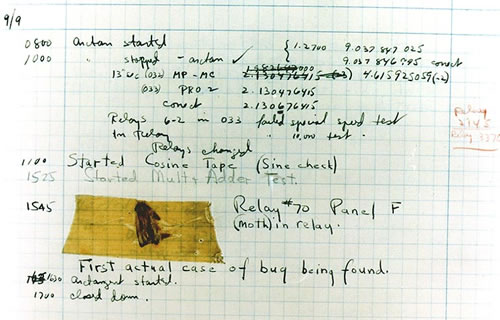 9/9
0800 antan started { 1.2700 9.037 847 025
1000 " stopped - antan ✓ 9.037 846 995 correct
13"uc (032) MP - MC 2.130476415 4.615925059(-2)
(033) PRO 2 2.130476415
correct 2.130676415
Relays 6-2 in 033 failed special speed test
In Relay " 10,000 test.
Relay
2145
Relay 3370
Relays changed
1100 Started Cosine Tape (Sine check)
1525 Started Mult + Adder Test.
1545 Relay #70 Panel F
(moth) in relay.
First actual case of bug being found.
1630 antangent started.
1700 closed down.